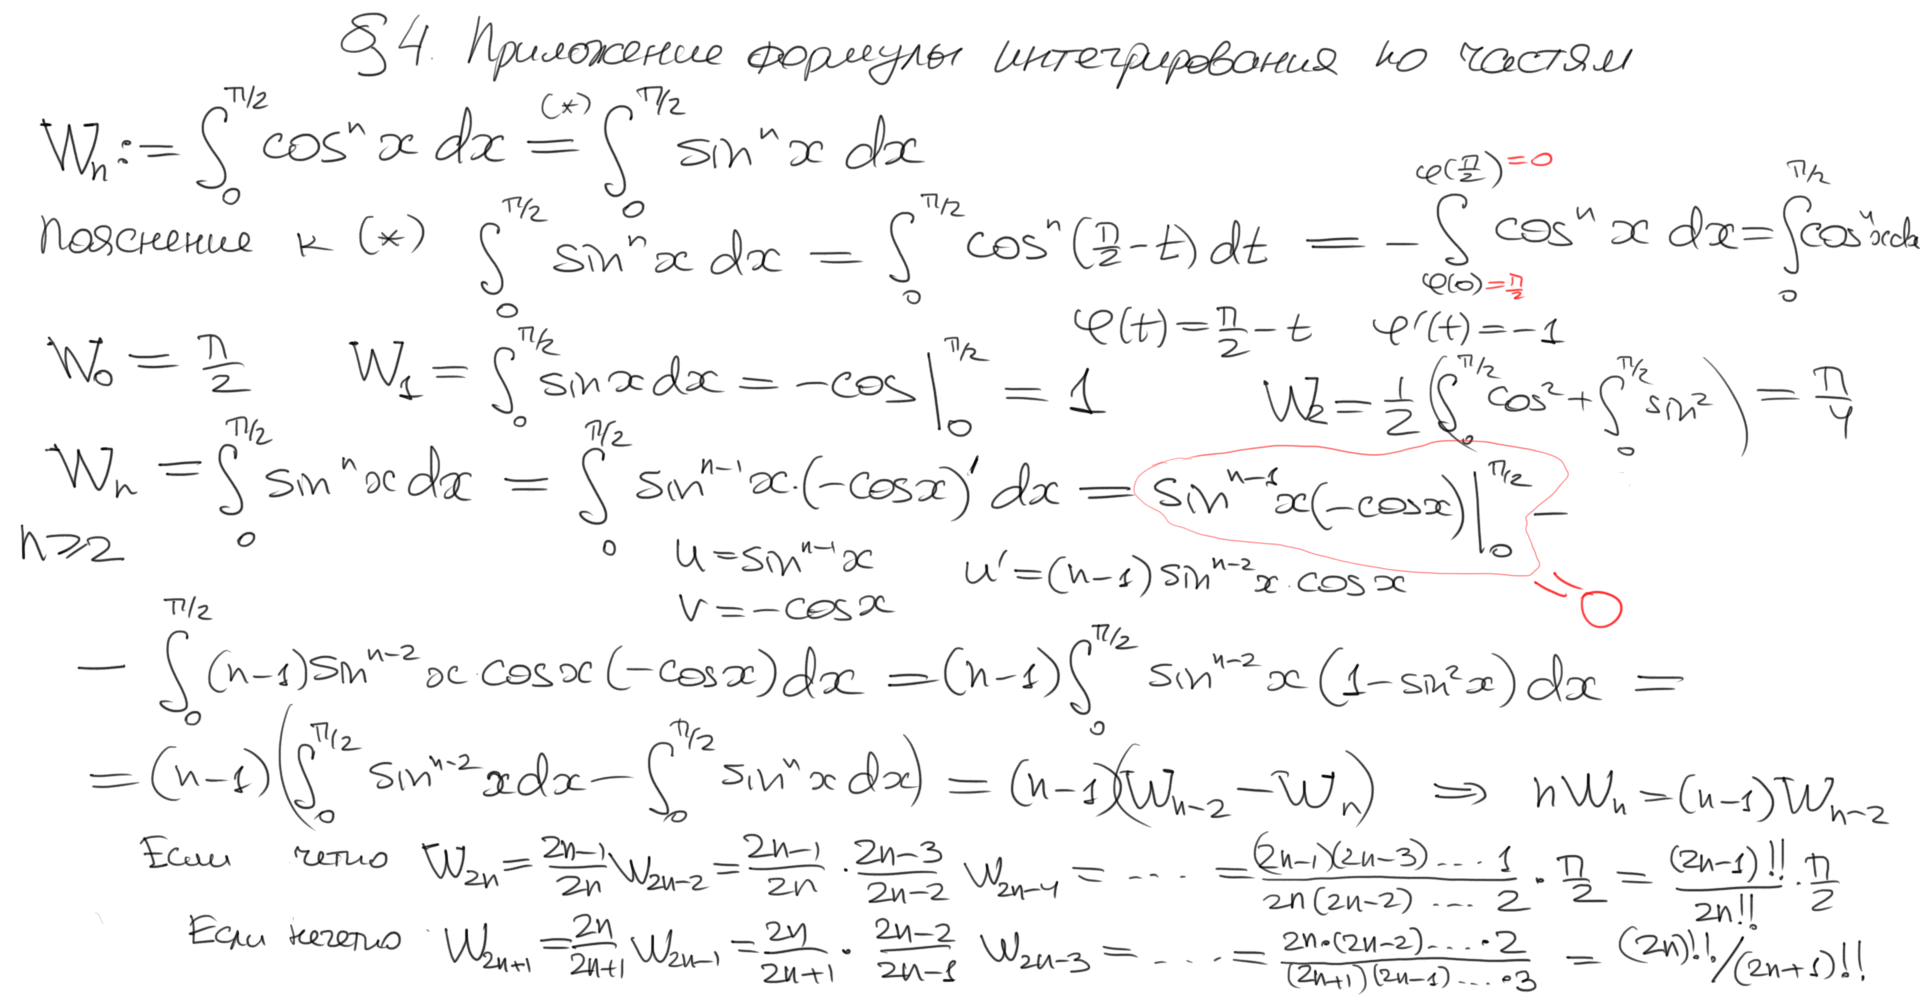 §4. Приложение формулы интегрирования по частям
Wₙ := ∫₀^{π/2} cosⁿ x dx =^{(*)} ∫₀^{π/2} sinⁿ x dx
Пояснение к (*) ∫₀^{π/2} sinⁿ x dx = ∫₀^{π/2} cosⁿ(π/2 - t) dt = - ∫_{φ(0)=π/2}^{φ(π/2)=0} cosⁿ x dx = ∫₀^{π/2} cosⁿ x dx
φ(t) = π/2 - t φ'(t) = -1
W₀ = π/2 W₁ = ∫₀^{π/2} sin x dx = -cos |₀^{π/2} = 1 W₂ = 1/2 (∫₀^{π/2} cos² + ∫₀^{π/2} sin²) = π/4
Wₙ = ∫₀^{π/2} sinⁿ x dx = ∫₀^{π/2} sin^{n-1} x · (-cos x)' dx = sin^{n-1} x (-cos x) |₀^{π/2} -
n ⩾ 2 u = sin^{n-1} x u' = (n-1) sin^{n-2} x · cos x = 0
v = -cos x
- ∫₀^{π/2} (n-1) sin^{n-2} x cos x (-cos x) dx = (n-1) ∫₀^{π/2} sin^{n-2} x (1 - sin² x) dx =
= (n-1) (∫₀^{π/2} sin^{n-2} x dx - ∫₀^{π/2} sinⁿ x dx) = (n-1)(W_{n-2} - Wₙ) ⇒ nWₙ = (n-1) W_{n-2}
Если четно W_{2n} = (2n-1)/(2n) W_{2n-2} = (2n-1)/(2n) · (2n-3)/(2n-2) W_{2n-4} = .... = ((2n-1)(2n-3)....1)/(2n(2n-2)....2) · π/2 = (2n-1)!!/2n!! · π/2
Если нечетно W_{2n+1} = (2n)/(2n+1) W_{2n-1} = (2n)/(2n+1) · (2n-2)/(2n-1) W_{2n-3} = .... = (2n·(2n-2)....·2)/((2n+1)(2n-1)....·3) = (2n)!!/(2n+1)!!